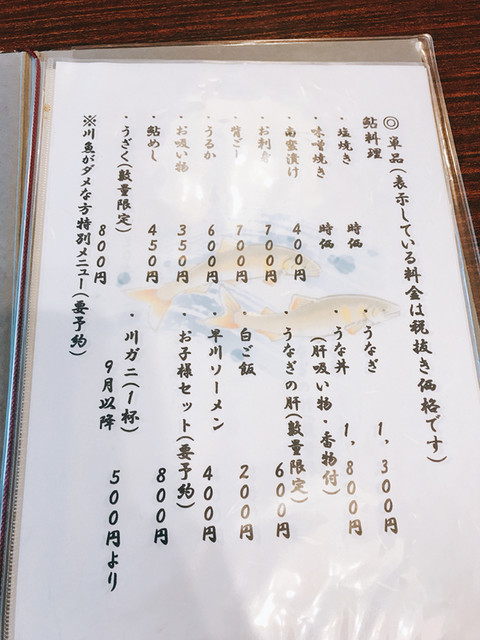 ◎単品(表示している料金は税抜き価格です)
鮎料理
・塩焼き 時価
・味噌焼き 時価
・南蛮漬け 400円
・お刺身 700円
・背ごし 700円
・うるか 600円
・お吸い物 350円
・鮎めし 450円
・うざく(数量限定) 800円
・うなぎ 1,300円
・うな丼 1,800円
(肝吸い物・香物付)
・うなぎの肝(数量限定) 600円
・白ご飯 200円
・早川ソーメン 400円
・お子様セット(要予約) 800円
・川ガニ(1杯)
9月以降 500円より
※川魚がダメな方特別メニュー(要予約)